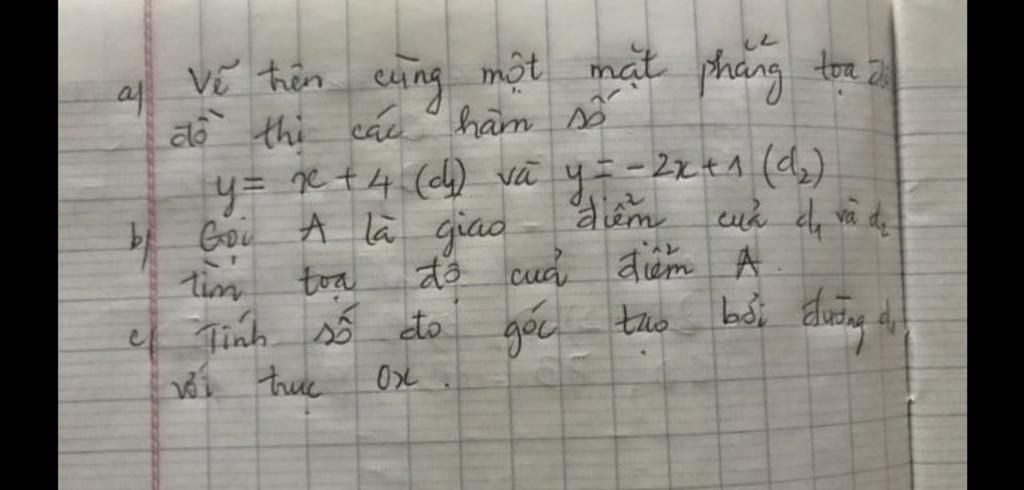 a) Vẽ trên cùng một mặt phẳng tọa độ
đồ thị các hàm số
y = x + 4 (d1) và y = -2x + 1 (d2)
b) Gọi A là giao điểm của d1 và d2
tìm tọa độ của điểm A.
c) Tính số đo góc tạo bởi đường d1
với trục Ox.